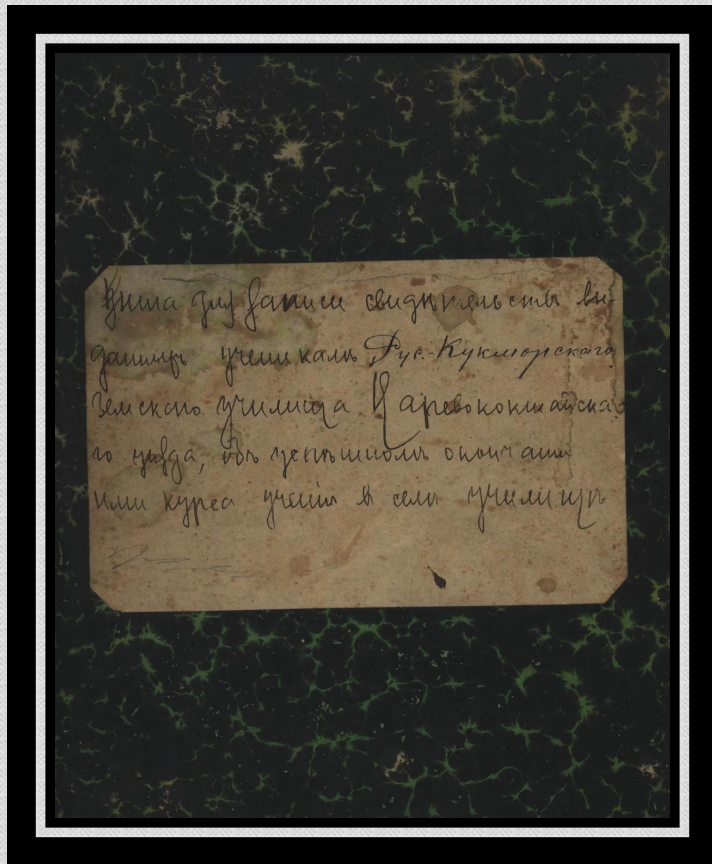 Книга для записи свидѣтельствъ вы-
данныхъ ученикамъ Рус.-Кукморскаго
Земскаго училища Царевококшайска-
го уѣзда, объ успѣшномъ окончаніи
ими курса ученія в семъ училищѣ